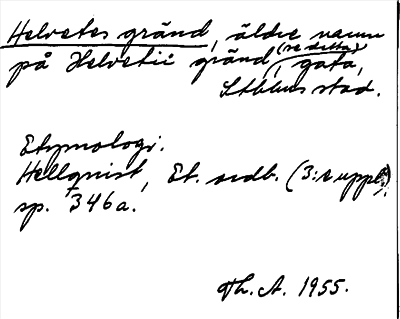 Helvetes gränd, äldre namn
på Helvetii gränd, (se detta) gata,
Sthlms stad.
Etymologi.
Hellquist, Et. ordb. (3:e uppl.),
sp. 346a.
Th. A. 1955.